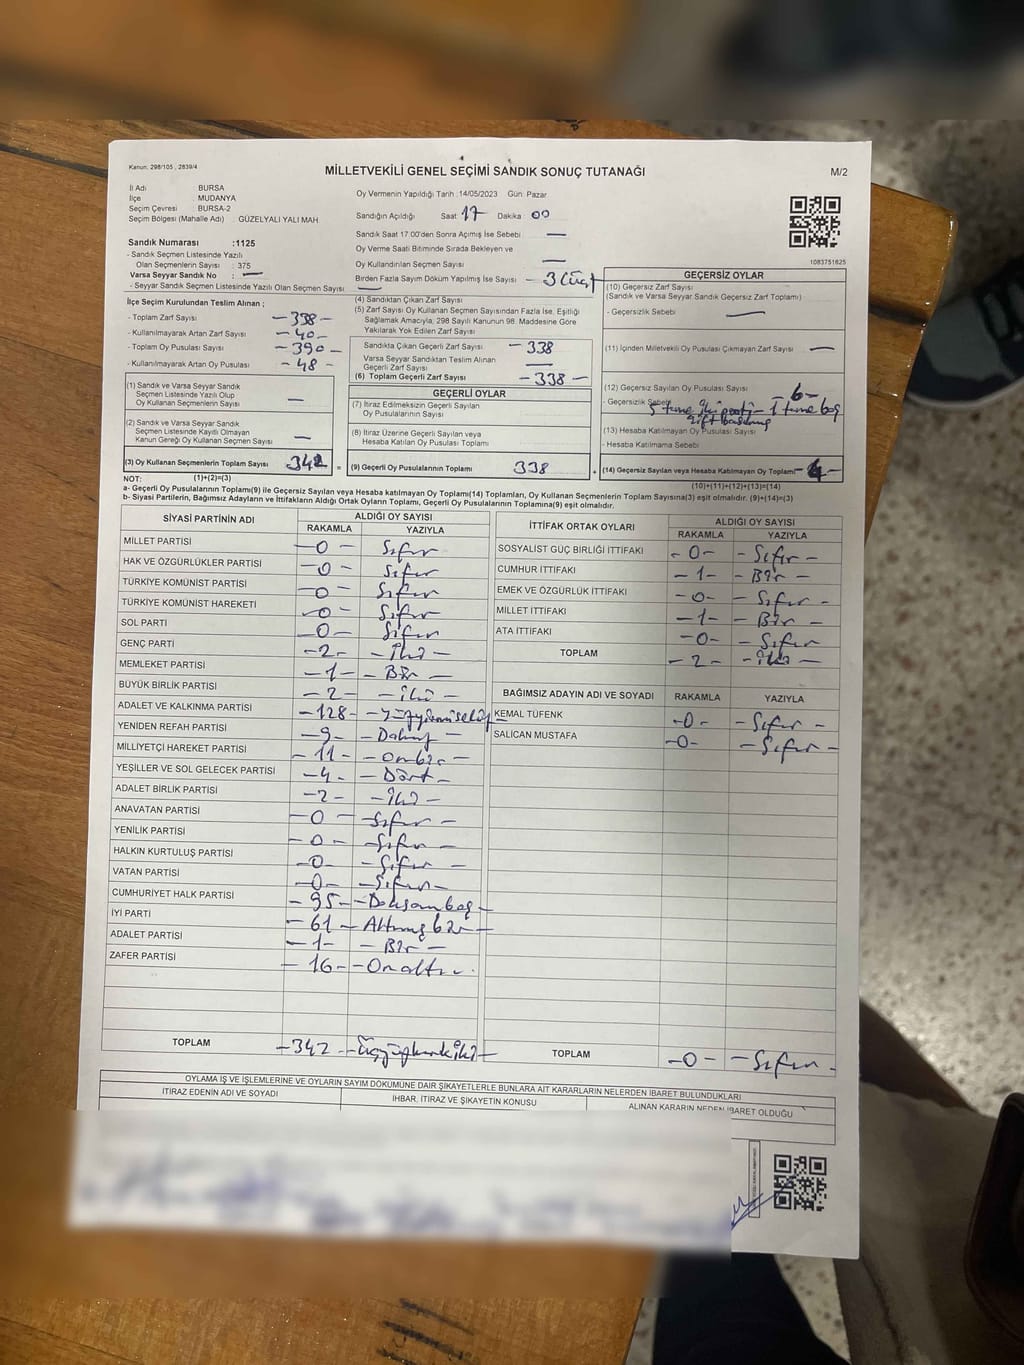 Kanun. 298/105 , 2839/4
MİLLETVEKİLİ GENEL SEÇİMİ SANDIK SONUÇ TUTANAĞI
M/2
İl Adı BURSA
İlçe MUDANYA
Seçim Çevresi BURSA-2
Seçim Bölgesi (Mahalle Adı) : GÜZELYALI YALI MAH.
Sandık Numarası :1125
- Sandık Seçmen Listesinde Yazılı
Olan Seçmenlerin Sayısı : 375
Varsa Seyyar Sandık No : —
- Seyyar Sandık Seçmen Listesinde Yazılı Olan Seçmen Sayısı —
Oy Vermenin Yapıldığı Tarih :14/05/2023 Gün Pazar
Sandığın Açıldığı Saat 17 Dakika 00
Sandık Saat 17:00'den Sonra Açılmış İse Sebebi —
Oy Verme Saati Bitiminde Sırada Bekleyen ve
Oy Kullandırılan Seçmen Sayısı —
Birden Fazla Sayım Döküm Yapılmış İse Sayısı - 3 (üç)
1083751625
İlçe Seçim Kurulundan Teslim Alınan ;
- Toplam Zarf Sayısı - 338 -
- Kullanılmayarak Artan Zarf Sayısı - 40 -
- Toplam Oy Pusulası Sayısı - 390 -
- Kullanılmayarak Artan Oy Pusulası - 48 -
(1) Sandık ve Varsa Seyyar Sandık
Seçmen Listesinde Yazılı Olup
Oy Kullanan Seçmenlerin Sayısı —
(2) Sandık ve Varsa Seyyar Sandık
Seçmen Listesinde Kayıtlı Olmayan
Kanun Gereği Oy Kullanan Seçmen Sayısı —
(3) Oy Kullanan Seçmenlerin Toplam Sayısı 342 =
(4) Sandıktan Çıkan Zarf Sayısı
(5) Zarf Sayısı Oy Kullanan Seçmen Sayısından Fazla İse, Eşitliği
Sağlamak Amacıyla; 298 Sayılı Kanunun 98. Maddesine Göre
Yakılarak Yok Edilen Zarf Sayısı
Sandıkta Çıkan Geçerli Zarf Sayısı - 338
Varsa Seyyar Sandıktan Teslim Alınan
Geçerli Zarf Sayısı —
(6) Toplam Geçerli Zarf Sayısı - 338 -
GEÇERLİ OYLAR
(7) İtiraz Edilmeksizin Geçerli Sayılan
Oy Pusulalarının Sayısı
(8) İtiraz Üzerine Geçerli Sayılan veya
Hesaba Katılan Oy Pusulası Toplamı
(9) Geçerli Oy Pusulalarının Toplamı 338 +
GEÇERSİZ OYLAR
(10) Geçersiz Zarf Sayısı
(Sandık ve Varsa Seyyar Sandık Geçersiz Zarf Toplamı)
- Geçersizlik Sebebi —
(11) İçinden Milletvekili Oy Pusulası Çıkmayan Zarf Sayısı —
(12) Geçersiz Sayılan Oy Pusulası Sayısı - 6 -
- Geçersizlik Sebebi 5 tane - 1 tane boş
(13) Hesaba Katılmayan Oy Pusulası Sayısı
- Hesaba Katılmama Sebebi
(14) Geçersiz Sayılan veya Hesaba Katılmayan Oy Toplamı - 4 -
NOT: (1)+(2)=(3)
(10)+(11)+(12)+(13)=(14)
a- Geçerli Oy Pusulalarının Toplamı(9) ile Geçersiz Sayılan veya Hesaba katılmayan Oy Toplamı(14) Toplamları, Oy Kullanan Seçmenlerin Toplam Sayısına(3) eşit olmalıdır. (9)+(14)=(3)
b- Siyasi Partilerin, Bağımsız Adayların ve İttifakların Aldığı Ortak Oyların Toplamı, Geçerli Oy Pusulalarının Toplamına(9) eşit olmalıdır.
SİYASİ PARTİNİN ADI ALDIĞI OY SAYISI
RAKAMLA YAZIYLA
MİLLET PARTİSİ - 0 - Sıfır
HAK VE ÖZGÜRLÜKLER PARTİSİ - 0 - Sıfır
TÜRKİYE KOMÜNİST PARTİSİ - 0 - Sıfır
TÜRKİYE KOMÜNİST HAREKETİ - 0 - Sıfır
SOL PARTİ - 0 - Sıfır
GENÇ PARTİ - 2 - - İki -
MEMLEKET PARTİSİ - 1 - - Bir -
BÜYÜK BİRLİK PARTİSİ - 2 - - iki -
ADALET VE KALKINMA PARTİSİ - 128 - - yüzyirmisekiz -
YENİDEN REFAH PARTİSİ - 9 - - Dokuz -
MİLLİYETÇİ HAREKET PARTİSİ - 11 - - Onbir -
YEŞİLLER VE SOL GELECEK PARTİSİ - 4 - - Dört -
ADALET BİRLİK PARTİSİ - 2 - - İki -
ANAVATAN PARTİSİ - 0 - - Sıfır -
YENİLİK PARTİSİ - 0 - - Sıfır -
HALKIN KURTULUŞ PARTİSİ - 0 - - Sıfır -
VATAN PARTİSİ - 0 - - Sıfır -
CUMHURİYET HALK PARTİSİ - 95 - - Doksanbeş -
İYİ PARTİ - 61 - - Altmışbir -
ADALET PARTİSİ - 1 - - Bir -
ZAFER PARTİSİ - 16 - - Onaltı -
TOPLAM - 342 - - Üçyüzkırkiki -
İTTİFAK ORTAK OYLARI ALDIĞI OY SAYISI
RAKAMLA YAZIYLA
SOSYALİST GÜÇ BİRLİĞİ İTTİFAKI - 0 - - Sıfır -
CUMHUR İTTİFAKI - 1 - - Bir -
EMEK VE ÖZGÜRLÜK İTTİFAKI - 0 - - Sıfır -
MİLLET İTTİFAKI - 1 - - Bir -
ATA İTTİFAKI - 0 - - Sıfır
TOPLAM - 2 - - iki -
BAĞIMSIZ ADAYIN ADI VE SOYADI RAKAMLA YAZIYLA
KEMAL TÜFENK - 0 - - Sıfır -
SALİCAN MUSTAFA - 0 - - Sıfır -
TOPLAM - 0 - - Sıfır -
OYLAMA İŞ VE İŞLEMLERİNE VE OYLARIN SAYIM DÖKÜMÜNE DAİR ŞİKAYETLERLE BUNLARA AİT KARARLARIN NELERDEN İBARET BULUNDUKLARI
İTİRAZ EDENİN ADI VE SOYADI
İHBAR, İTİRAZ VE ŞİKAYETİN KONUSU
ALINAN KARARIN NEDEN İBARET OLDUĞU